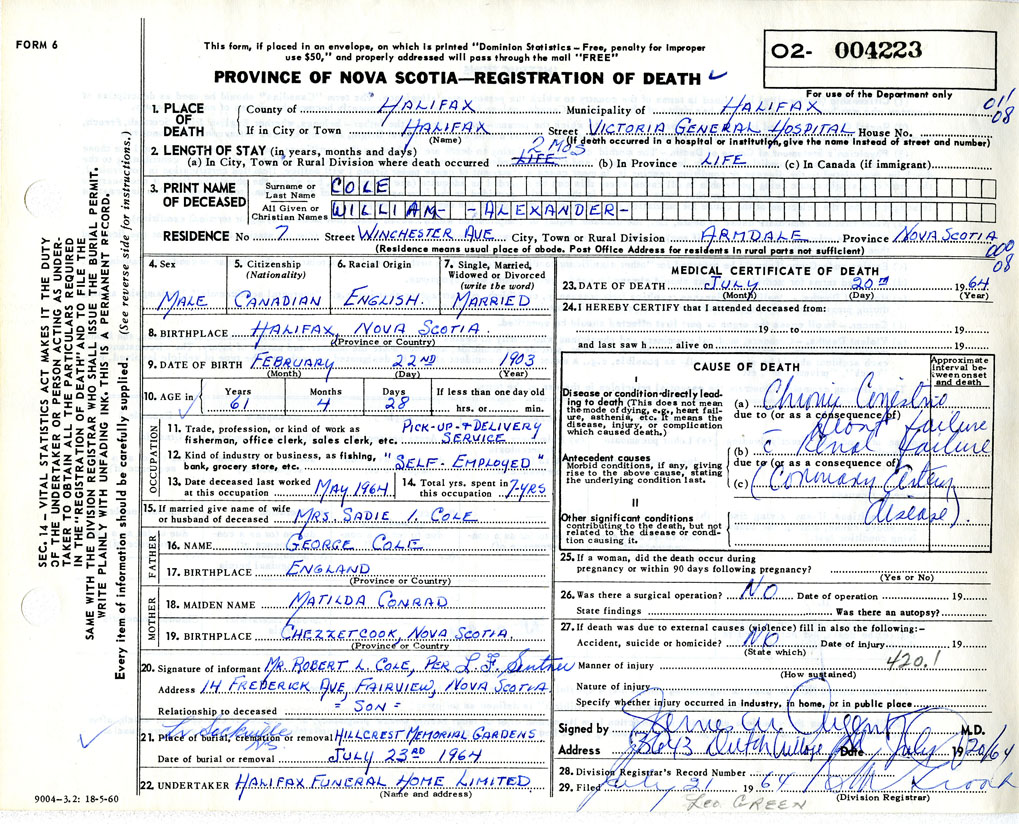 FORM 6
This form, if placed in an envelope, on which is printed "Dominion Statistics – Free, penalty for improper
use $50," and properly addressed will pass through the mail "FREE"
PROVINCE OF NOVA SCOTIA—REGISTRATION OF DEATH ✓
02- 004223
For use of the Department only
011
08
1. PLACE OF DEATH
County of HALIFAX Municipality of HALIFAX
If in City or Town HALIFAX Street VICTORIA GENERAL HOSPITAL House No.
(Name) (If death occurred in a hospital or institution, give the name instead of street and number)
2. LENGTH OF STAY (in years, months and days) 2 MOS
(a) In City, Town or Rural Division where death occurred LIFE (b) In Province LIFE (c) In Canada (if immigrant)
3. PRINT NAME OF DECEASED
Surname or Last Name COLE
All Given or Christian Names WILLIAM - ALEXANDER -
RESIDENCE No 7 Street WINCHESTER AVE. City, Town or Rural Division ARMDALE Province NOVA SCOTIA
(Residence means usual place of abode. Post Office Address for residents in rural parts not sufficient)
000
08
4. Sex MALE
5. Citizenship (Nationality) CANADIAN
6. Racial Origin ENGLISH.
7. Single, Married, Widowed or Divorced (write the word) MARRIED
8. BIRTHPLACE HALIFAX, NOVA SCOTIA
(Province or Country)
9. DATE OF BIRTH FEBRUARY 22ND 1903
(Month) (Day) (Year)
10. AGE in Years 61 Months 4 Days 28 If less than one day old hrs. or min.
OCCUPATION
11. Trade, profession, or kind of work as fisherman, office clerk, sales clerk, etc. PICK-UP-+ DELIVERY SERVICE
12. Kind of industry or business, as fishing, bank, grocery store, etc. "SELF-EMPLOYED"
13. Date deceased last worked at this occupation MAY 1964
14. Total yrs. spent in this occupation 7-YRS
15. If married give name of wife or husband of deceased MRS. SADIE I. COLE
FATHER
16. NAME GEORGE COLE
17. BIRTHPLACE ENGLAND
(Province or Country)
MOTHER
18. MAIDEN NAME MATILDA CONRAD
19. BIRTHPLACE CHEZZETCOOK, NOVA SCOTIA.
(Province or Country)
20. Signature of informant MR. ROBERT L. COLE, PER L. F.
Address 14 FREDERICK AVE, FAIRVIEW, NOVA SCOTIA.
Relationship to deceased = SON =
Sackville NS
21. Place of burial, cremation or removal HILLCREST MEMORIAL GARDENS
Date of burial or removal JULY 23RD 1964
22. UNDERTAKER HALIFAX FUNERAL HOME LIMITED
(Name and address)
MEDICAL CERTIFICATE OF DEATH
23. DATE OF DEATH JULY 20th 1964
(Month) (Day) (Year)
24. I HEREBY CERTIFY that I attended deceased from:
19 to 19
and last saw h alive on 19
CAUSE OF DEATH
Approximate interval between onset and death
I
Disease or condition directly leading to death (This does not mean the mode of dying, e.g., heart failure, asthenia, etc. It means the disease, injury, or complication which caused death.)
(a) Chronic Congestive
due to (or as a consequence of) Heart failure
Antecedent causes
Morbid conditions, if any, giving rise to the above cause, stating the underlying condition last.
(b) c̄ Renal failure
due to (or as a consequence of)
(c) (Coronary Artery disease).
II
Other significant conditions
contributing to the death, but not related to the disease or condition causing it.
25. If a woman, did the death occur during pregnancy or within 90 days following pregnancy?
(Yes or No)
26. Was there a surgical operation? NO Date of operation 19
State findings Was there an autopsy?
27. If death was due to external causes (violence) fill in also the following:–
Accident, suicide or homicide? NO Date of injury 19
(State which)
420.1
Manner of injury
(How sustained)
Nature of injury
Specify whether injury occurred in industry, in home, or in public place
Signed by James W. M.D.
Address 3643 Dutch Village Rd Date July 20/64
28. Division Registrar's Record Number
29. Filed July 21 1964
(Division Registrar)
Leo. GREEN
9004–3.2: 18-5-60
SEC. 14 – VITAL STATISTICS ACT MAKES IT THE DUTY
OF THE UNDERTAKER OR PERSON ACTING AS UNDER-
TAKER TO OBTAIN ALL THE PARTICULARS REQUIRED
IN THE "REGISTRATION OF DEATH" AND TO FILE THE
SAME WITH THE DIVISION REGISTRAR WHO SHALL ISSUE THE BURIAL PERMIT.
WRITE PLAINLY WITH UNFADING INK. THIS IS A PERMANENT RECORD.
Every item of information should be carefully supplied. (See reverse side for instructions.)